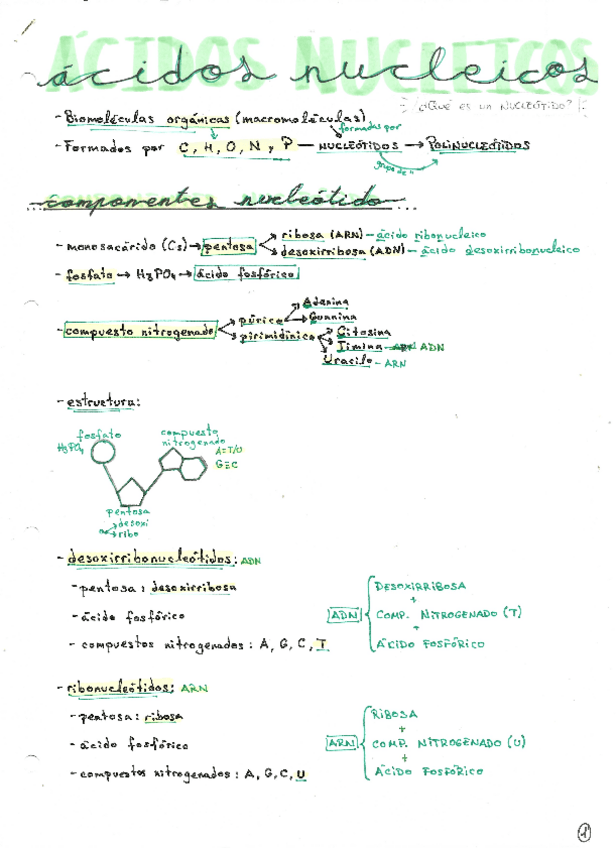 ÁCIDOS NUCLEICOS
ácidos nucleicos
¿QUÉ ES UN NUCLEÓTIDO?
- Biomoléculas orgánicas (macromoléculas)
formadas por
- Formados por C, H, O, N y P — NUCLEÓTIDOS → POLINUCLEÓTIDOS
grupo de n
COMPONENTES NUCLEÓTIDO
...componentes nucleótido...
ribosa (ARN) - ácido ribonucleico
- monosacárido (C5) → pentosa
desoxirribosa (ADN) - ácido desoxirribonucleico
- fosfato → H3PO4 → ácido fosfórico
Adenina
púrico
Guanina
- compuesto nitrogenado
Citosina
pirimidínico
Timina - ARN ADN
Uracilo - ARN
- estructura:
fosfato
compuesto
nitrogenado
H3PO4
A=T/U
G≡C
pentosa
desoxi
ribo
- desoxirribonucleótidos: ADN
- pentosa: desoxirribosa
DESOXIRRIBOSA
+
- ácido fosfórico
ADN
COMP. NITROGENADO (T)
+
- compuestos nitrogenados: A, G, C, T
ÁCIDO FOSFÓRICO
- ribonucleótidos: ARN
- pentosa: ribosa
RIBOSA
+
- ácido fosfórico
ARN
COMP. NITROGENADO (U)
+
- compuestos nitrogenados: A, G, C, U
ÁCIDO FOSFÓRICO
1